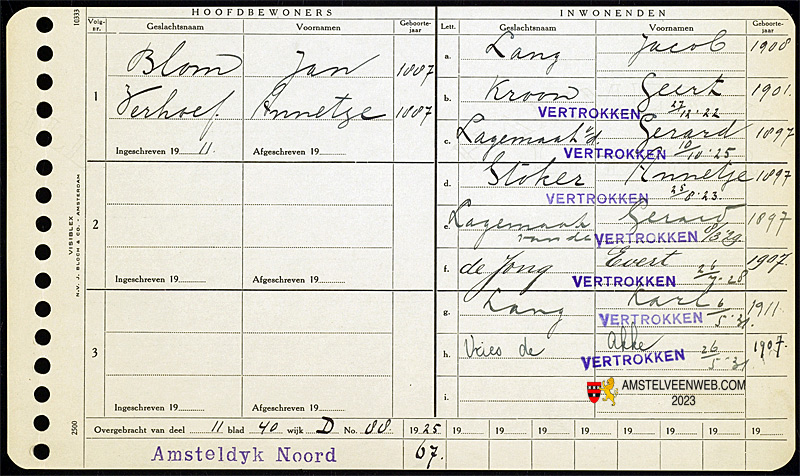 HOOFDBEWONERS
INWONENDEN
Volg-nr. Geslachtsnaam Voornamen Geboorte-jaar
Lett. Geslachtsnaam Voornamen Geboorte-jaar
10333
1 Blom Jan 1887
Verhoef. Annetje 1887
Ingeschreven 19 11. Afgeschreven 19
2
Ingeschreven 19 Afgeschreven 19
3
Ingeschreven 19 Afgeschreven 19
a. Lang Jacob 1908
b. Kroon Geert 1901.
VERTROKKEN 27/12 '22
c. Lagemaat v.d. Gerard 1897
VERTROKKEN 10/10 '25
d. Stoker Annetje 1897
VERTROKKEN 25/8 '23.
e. Lagemaat Gerard 1897
van de VERTROKKEN
f. de Jong Evert 1907.
VERTROKKEN 26/7 - 28
g. Lang Karl 1911.
VERTROKKEN 6/5 '31.
h. Vries de Akke 1907.
VERTROKKEN 26/5 - 31
i.
AMSTELVEENWEB.COM
2023
VISIBLEX
N.V. J. BLOCH & CO. - AMSTERDAM
2500
Overgebracht van deel 11 blad 40 wijk D No. 88 1925 19 19 19 19 19 19 19 19
Amsteldyk Noord 67.